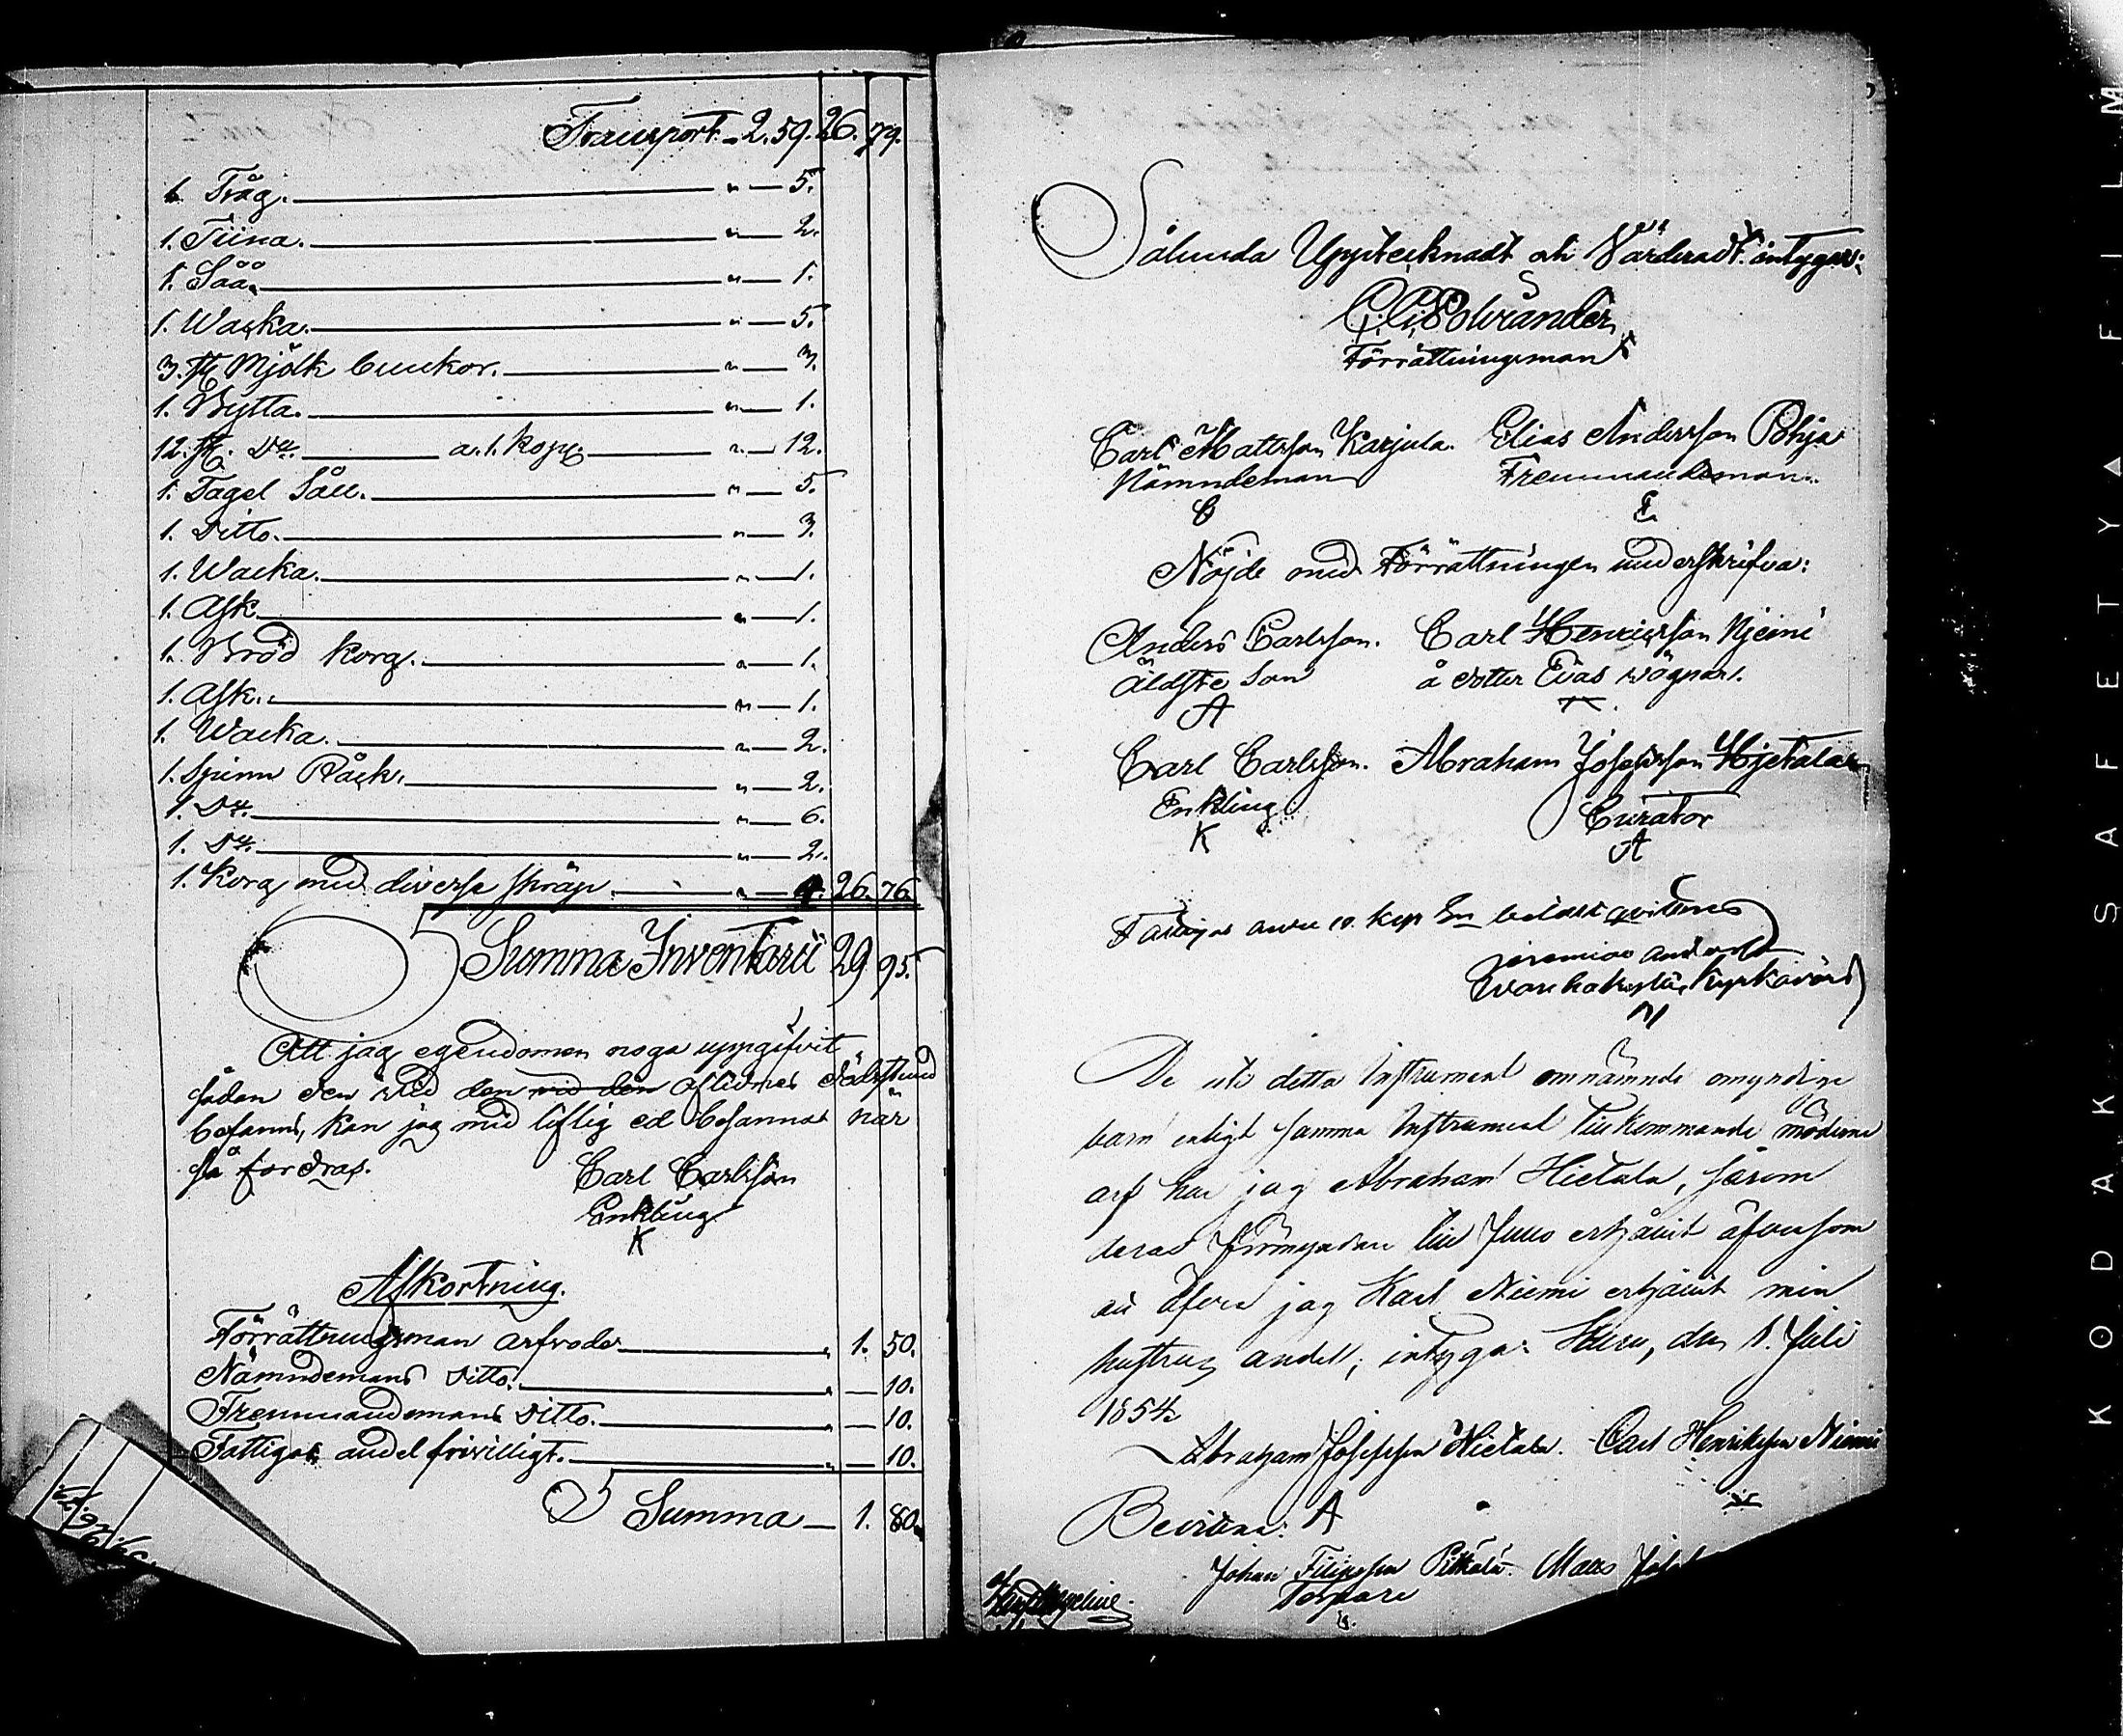 Transport 2. 59. 26. 79.
1. Tråg. " — 5.
1. Tiina. " — 2.
1. Såå. " — 1.
1. Wacka. " — 5.
3. st. Mjölk bunkor. " — 3.
1. Bytta. " — 1.
12. st. Do. a. 1. kop. " — 12.
1. Tagel Såll. " — 5.
1. Ditto. " — 3.
1. Wacka. " — 1.
1. Ask " — 1.
1. Bröd Korg. " — 1.
1. Ask. " — 1.
1. Wacka. " — 2.
1. Spinn Råck. " — 2.
1. Do. " — 6.
1. Do. " — 2.
1. Korg med diverse skräp. " — 26. 76.
Summa Inventarii 29 95.
Att jag egendomen noga uppgifvit
sådan den wid den vid den aflidnes dödsstund
befanns, kan jag med liflig ed befanna när
så fordras.
Carl Carlsson
Enkling
K
Afkortning.
Förrättningsman arfvode " 1. 50.
Nämndemans Ditto. " — 10.
Fremmandemans Ditto. " — 10.
Fattigas andel friwilligt. " — 10.
Summa — 1. 80.
Sålunda Upptecknadt och Värderadt intygas:
Förrättningsman
Carl Mattsson Karjula. Elias Andersson Pohja
Nämndeman Fremmandeman.
C E
Nöjde med Förrättningen underskrifva:
Anders Carlsson. Carl Henricsson Njemi
Äldste Son å dotter Evas vägnar.
A
Carl Carlsson. Abraham Josefsson Hjetala
Enkling Curator
K A
Fattigas andel 10. kop Sr betalt qvitteras
jeremias
Kyrkovärd
De uti detta Instrument omnämnde omyndige
barn enligt samma Instrument tillkommande möderne
arf har jag Abraham Hietala, såsom
deras förmyndare till fullo erhållit äfvensom
ock äfven jag Karl Niemi erhållit min
hustrus andel; intygar den 1. Juli
1854.
Abraham Josefsson Hietala. Carl Henriksson Niemi
A
Bevittna:
Johan Filipsson Pitkälä. Matts
Torpare